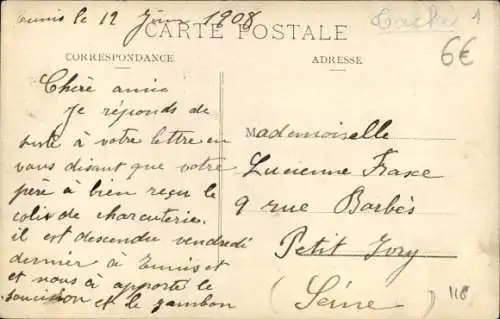 Tunis le 12 Juin 1908
CARTE POSTALE
Taché 1
6€
CORRESPONDANCE
ADRESSE
Chère amie
Je réponds de
suite à votre lettre en
vous disant que votre
père à bien reçu le
colis de charcuterie.
il est descendu vendredi
dernier à Tunis et
et nous à apporté le
saucission et le jambon
Mademoiselle
Lucienne
9 rue Barbès
Petit Ivry
(Seine)
118